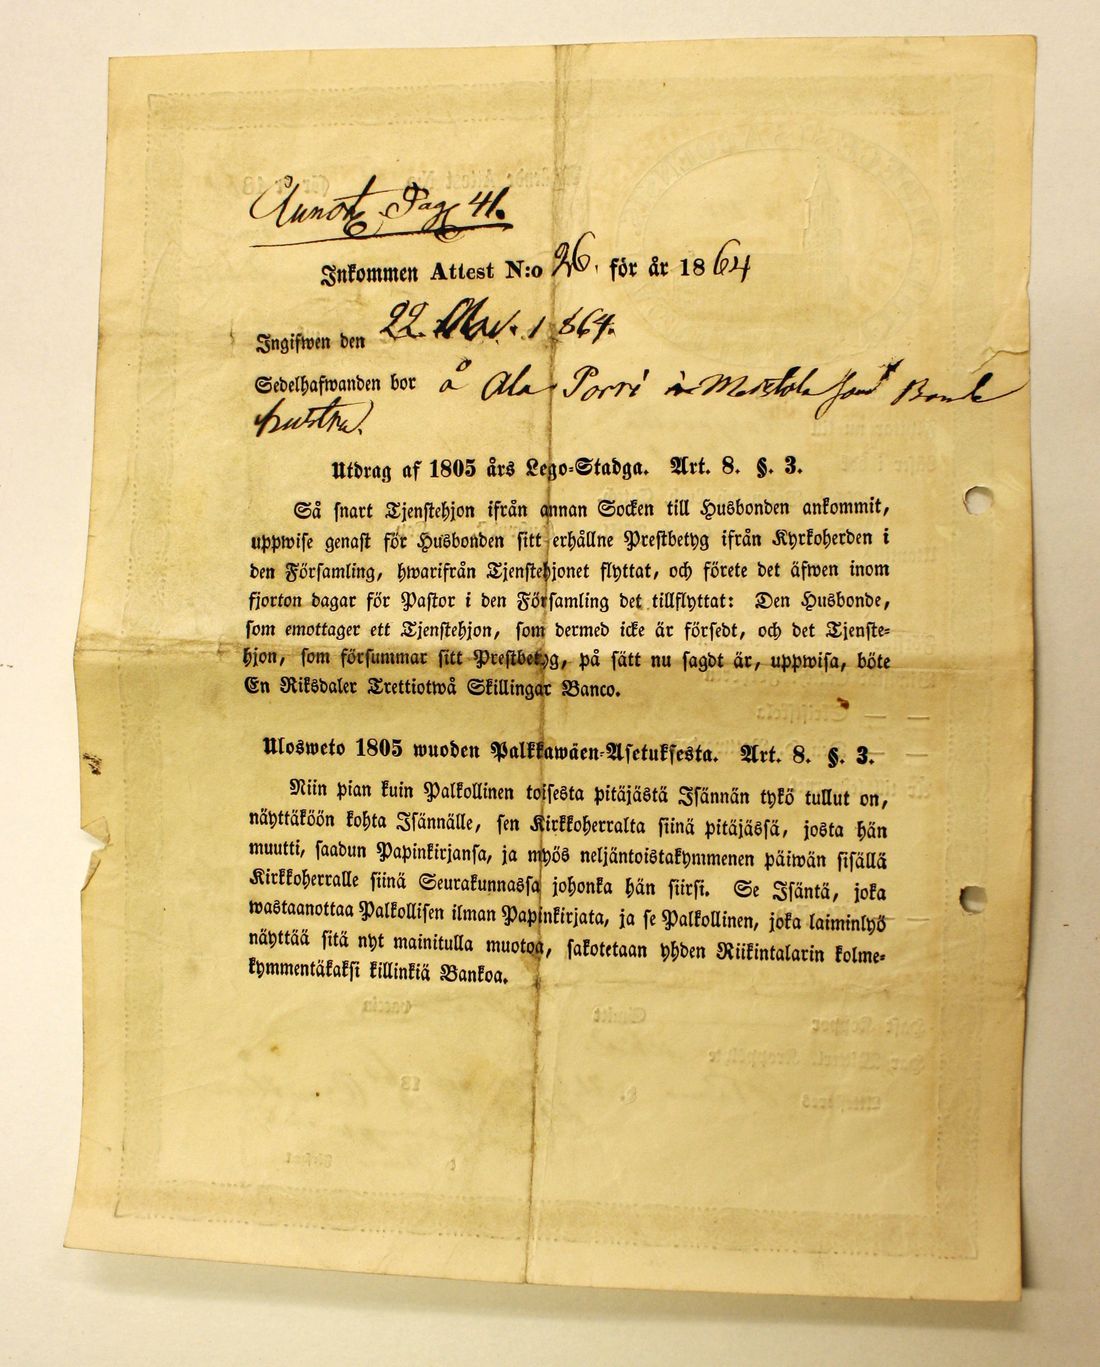 Annot. Pag 41.
Inkommen Attest N:o 26. för år 1864
Ingifwen den 22. Nov. 1864.
Sedelhafwanden bor å Ala Porri i Mestola som Bonde
hustru.
Utdrag af 1805 års Lego-Stadga. Art. 8. §. 3.
Så snart Tjenstehjon ifrån annan Socken till Husbonden ankommit,
uppwise genast för Husbonden sitt erhållne Prestbetyg ifrån Kyrkoherden i
den Församling, hwarifrån Tjenstehjonet flyttat, och förete det äfwen inom
fjorton dagar för Pastor i den Församling det tillflyttat: Den Husbonde,
som emottager ett Tjenstehjon, som dermed icke är försedt, och det Tjenste-
hjon, som försummar sitt Prestbetyg, på sätt nu sagdt är, uppwisa, böte
En Riksdaler Trettiotwå Skillingar Banco.
Ulosweto 1805 wuoden Palkkawäen-Asetuksesta. Art. 8. §. 3.
Niin pian kuin Palkollinen toisesta pitäjästä Isännän tykö tullut on,
näyttäköön kohta Isännälle, sen Kirkkoherralta siinä pitäjässä, josta hän
muutti, saadun Papinkirjansa, ja myös neljäntoistakymmenen päiwän sisällä
Kirkkoherralle siinä Seurakunnassa johonka hän siirsi. Se Isäntä, joka
wastaanottaa Palkollisen ilman Papinkirjata, ja se Palkollinen, joka laiminlyö
näyttää sitä nyt mainitulla muotoa, sakotetaan yhden Riikintalarin kolme-
kymmentäkaksi killinkiä Bankoa.